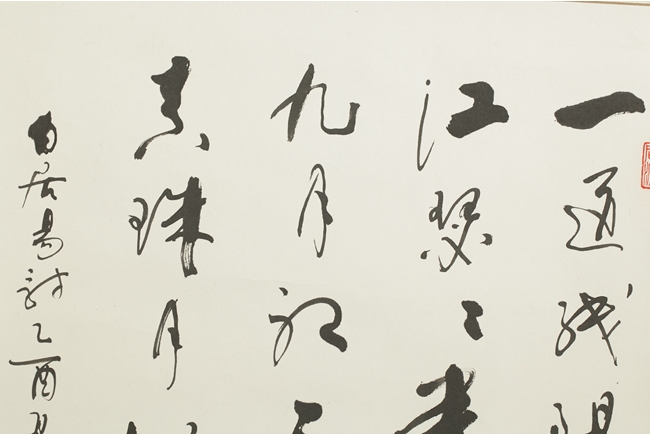 一道残陽
江瑟々半
九月初三
真珠月
白居易詩乙酉